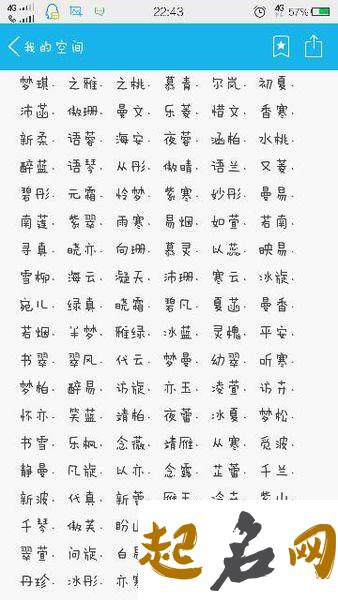 4G 4G 22:43 4G 57%
我的空间
梦琪. 之雅. 之桃. 慕青. 尔岚. 初夏.
沛菡. 傲珊. 曼文. 乐菱. 惜文. 香寒.
新柔. 语蓉. 海安. 夜蓉. 涵柏. 水桃.
醉蓝. 语琴. 从彤. 傲晴. 语兰. 又菱.
碧彤. 元霜. 怜梦. 紫寒. 妙彤. 曼易.
南莲. 紫翠. 雨寒. 易烟. 如萱. 若南.
寻真. 晓亦. 向珊. 慕灵. 以蕊. 映易.
雪柳. 海云. 凝天. 沛珊. 寒云. 冰旋.
宛儿. 绿真. 晓霜. 碧凡. 夏菡. 曼香.
若烟. 半梦. 雅绿. 冰蓝. 灵槐. 平安.
书翠. 翠风. 代云. 梦曼. 幼翠. 听寒.
梦柏. 醉易. 访旋. 亦玉. 凌萱. 访卉.
怀亦. 笑蓝. 靖柏. 夜蕾. 冰夏. 梦松.
书雪. 乐枫. 念薇. 靖雁. 从寒. 觅波.
静曼. 凡旋. 以亦. 念露. 芷蕾. 千兰.
新波. 代真. 新蕾. 雁玉. 冷卉. 紫山.
千琴. 傲芙. 盼山.
翠萱. 问旋. 白易.
丹珍. 冰彤. 亦寒.
起名网